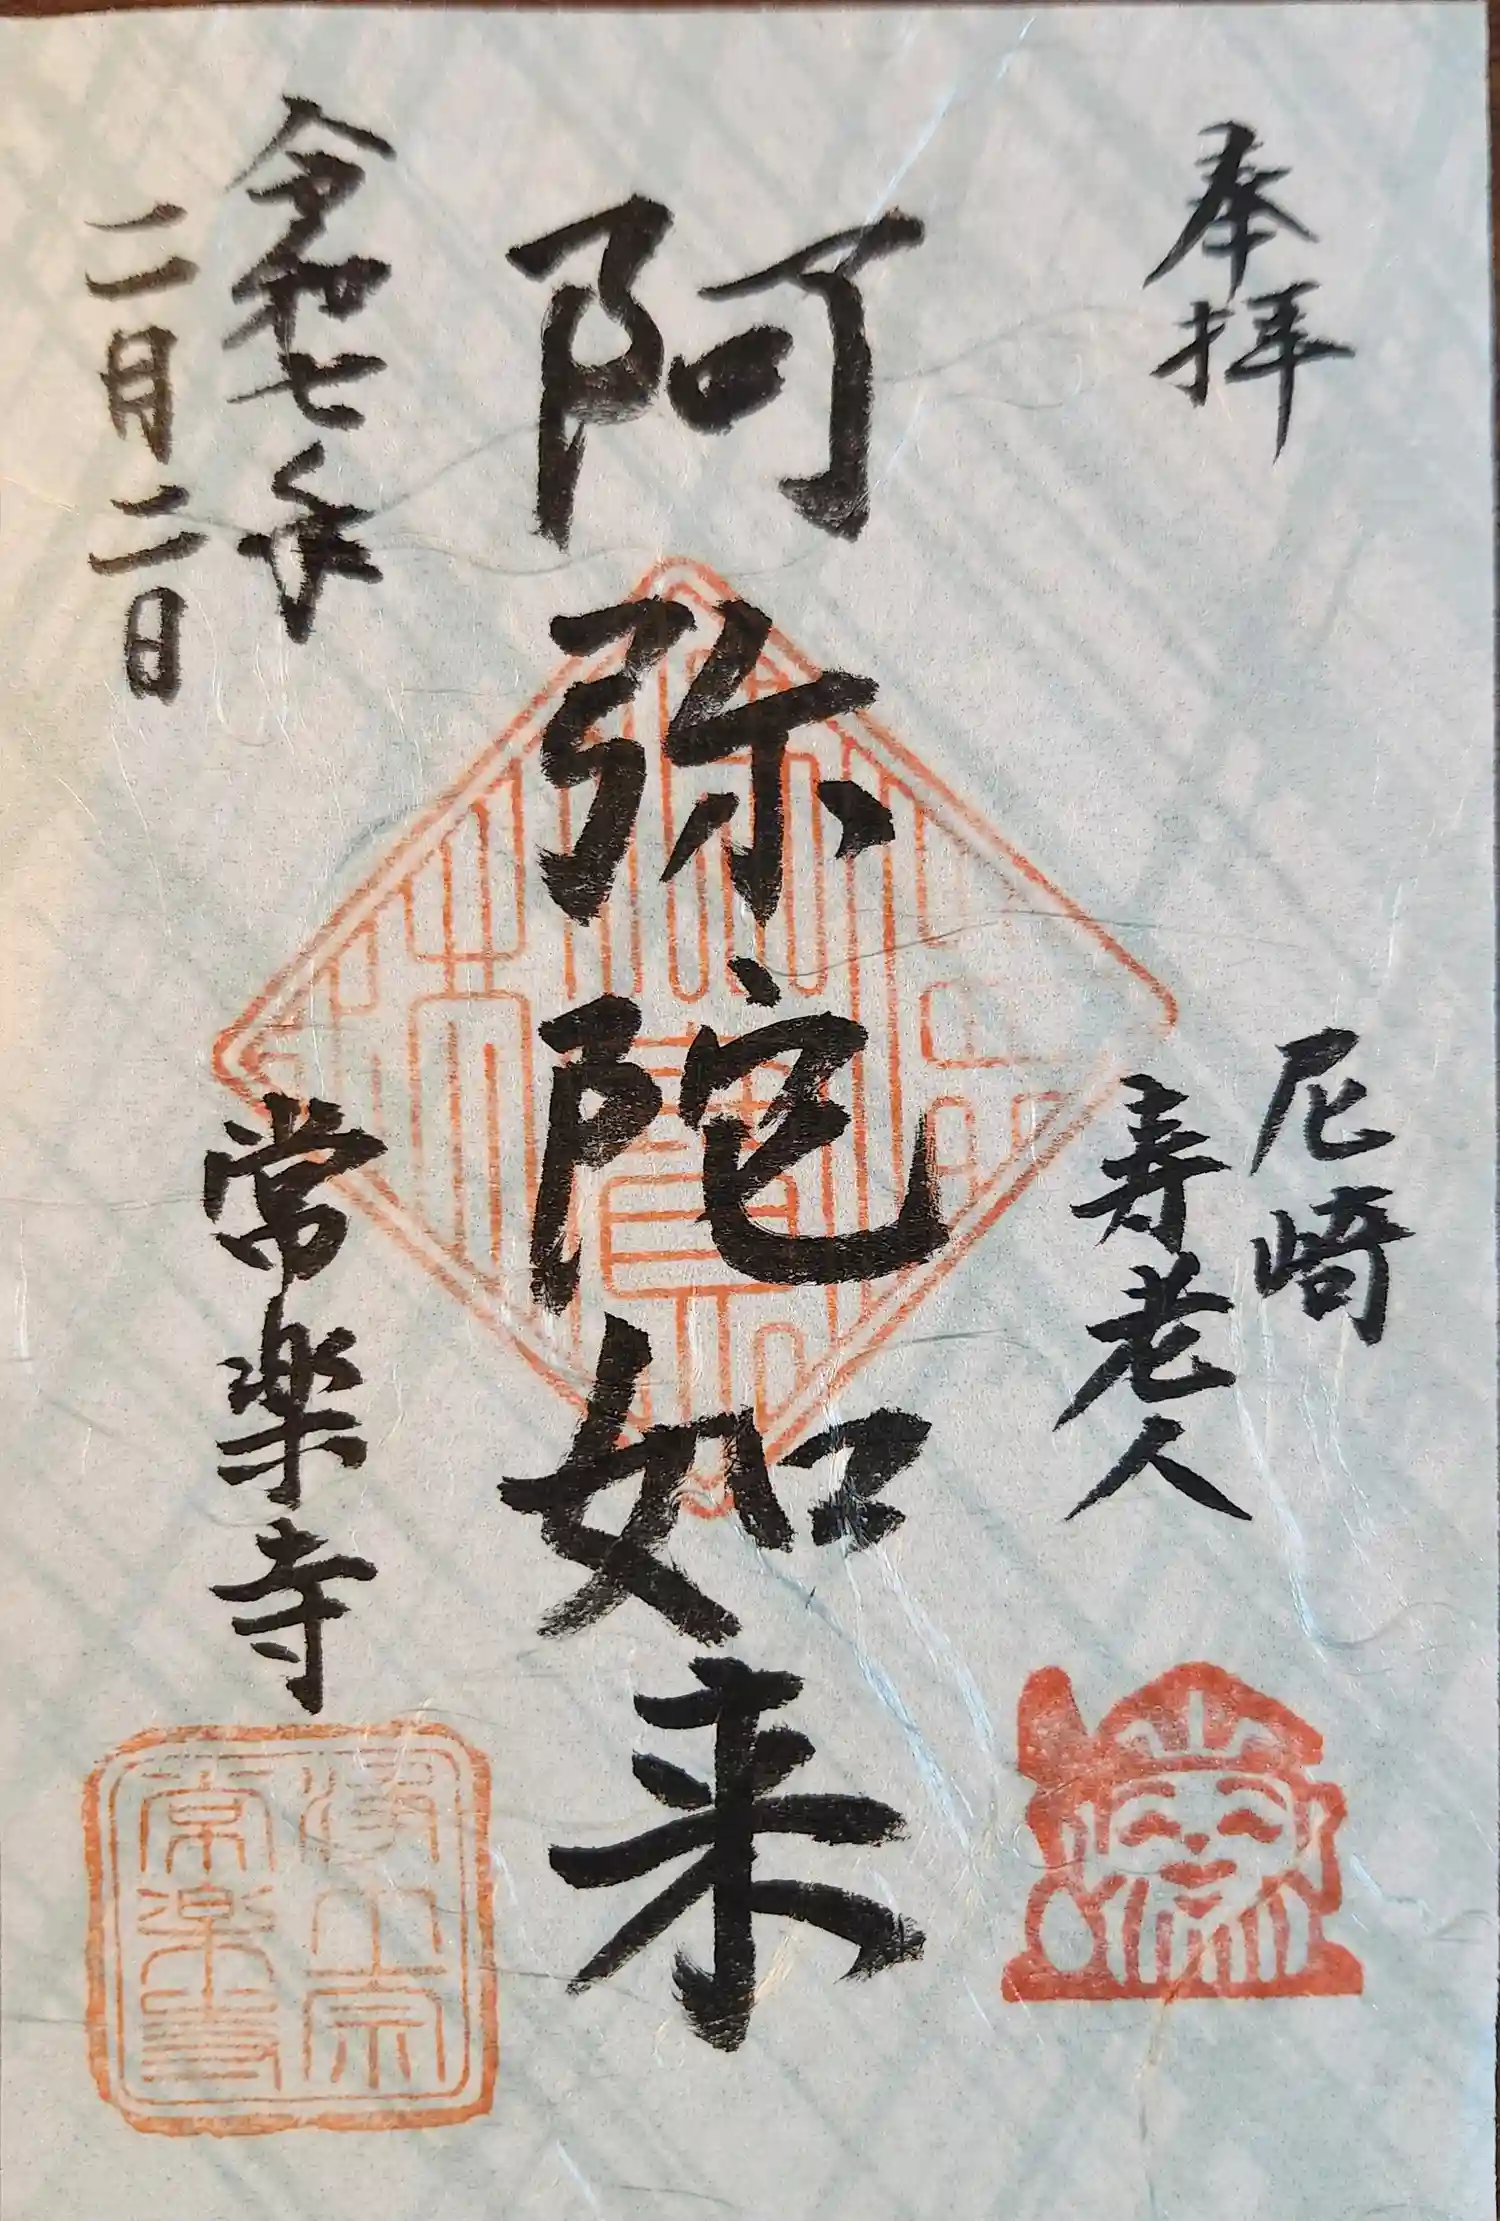 奉拝
尼崎
寿老人
阿弥陀如来
令和七年
二月二日
常楽寺
浄土宗
常楽寺